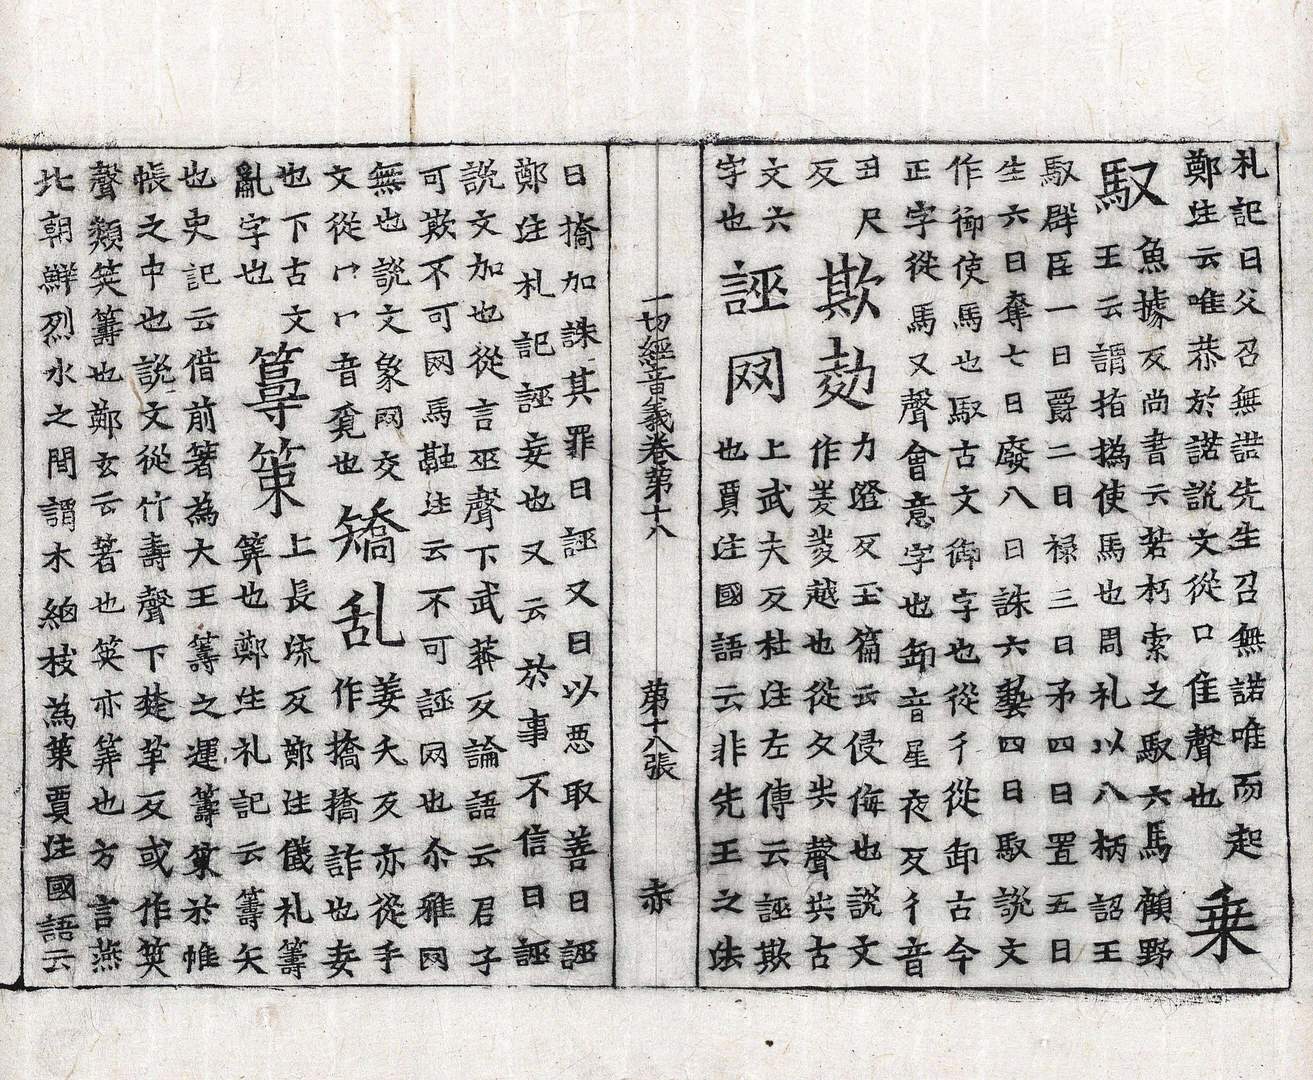 札記曰父召無諾先生召無諾唯而起
鄭注云唯恭於諾說文從口隹聲也
乗馭
魚據反尚書云若朽索之馭六馬顧野
王云謂指撝使馬也周礼以八柄詔王
馭群臣一曰爵二曰禄三曰予四曰置五曰
生六曰奪七曰廢八曰誅六藝四曰馭說文
作御使馬也馭古文御字也從彳從卸古今
正字從馬又聲會意字也卸音星夜反彳音
丑尺反
欺㱥
力澄反玉篇云侵侮也說文
作夌夌越也從夂𡴆聲𡴆古
文六字也
誣网
上武夫反杜注左傳云誣欺
也賈注國語云非先王之法
曰撟加誅其罪曰誣又曰以惡取善曰誣
鄭注札記誣妄也又云於事不信曰誣
說文加也從言巫聲下武莽反論語云君子
可欺不可网馬融注云不可誣网也尒雅网
無也說文象网交
文從冖冖音覓也
矯乱
姜夭反亦從手
作撟撟詐也妄
也下古文
亂字也
籌策
上長流反鄭注儀札籌
筭也鄭注礼記云籌矢
也史記云借前箸為大王籌之運籌䇿於帷
帳之中也說文從竹壽聲下楚革反或作筴
聲類筴籌也鄭玄云蓍也筴亦筭也方言燕
北朝鮮烈水之間謂木細枝為䇿賈注國語云
一切經音義卷第十八 第十八張 赤